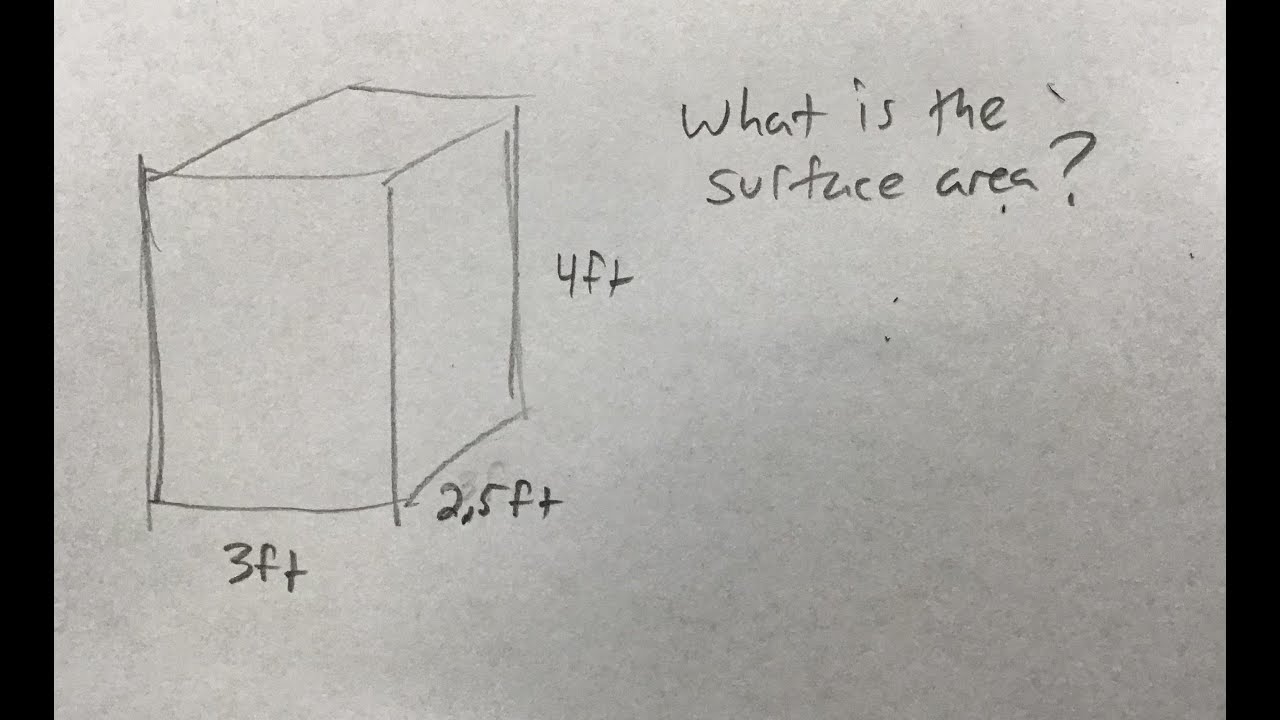 What is the
surface area?
4ft
2,5ft
3ft